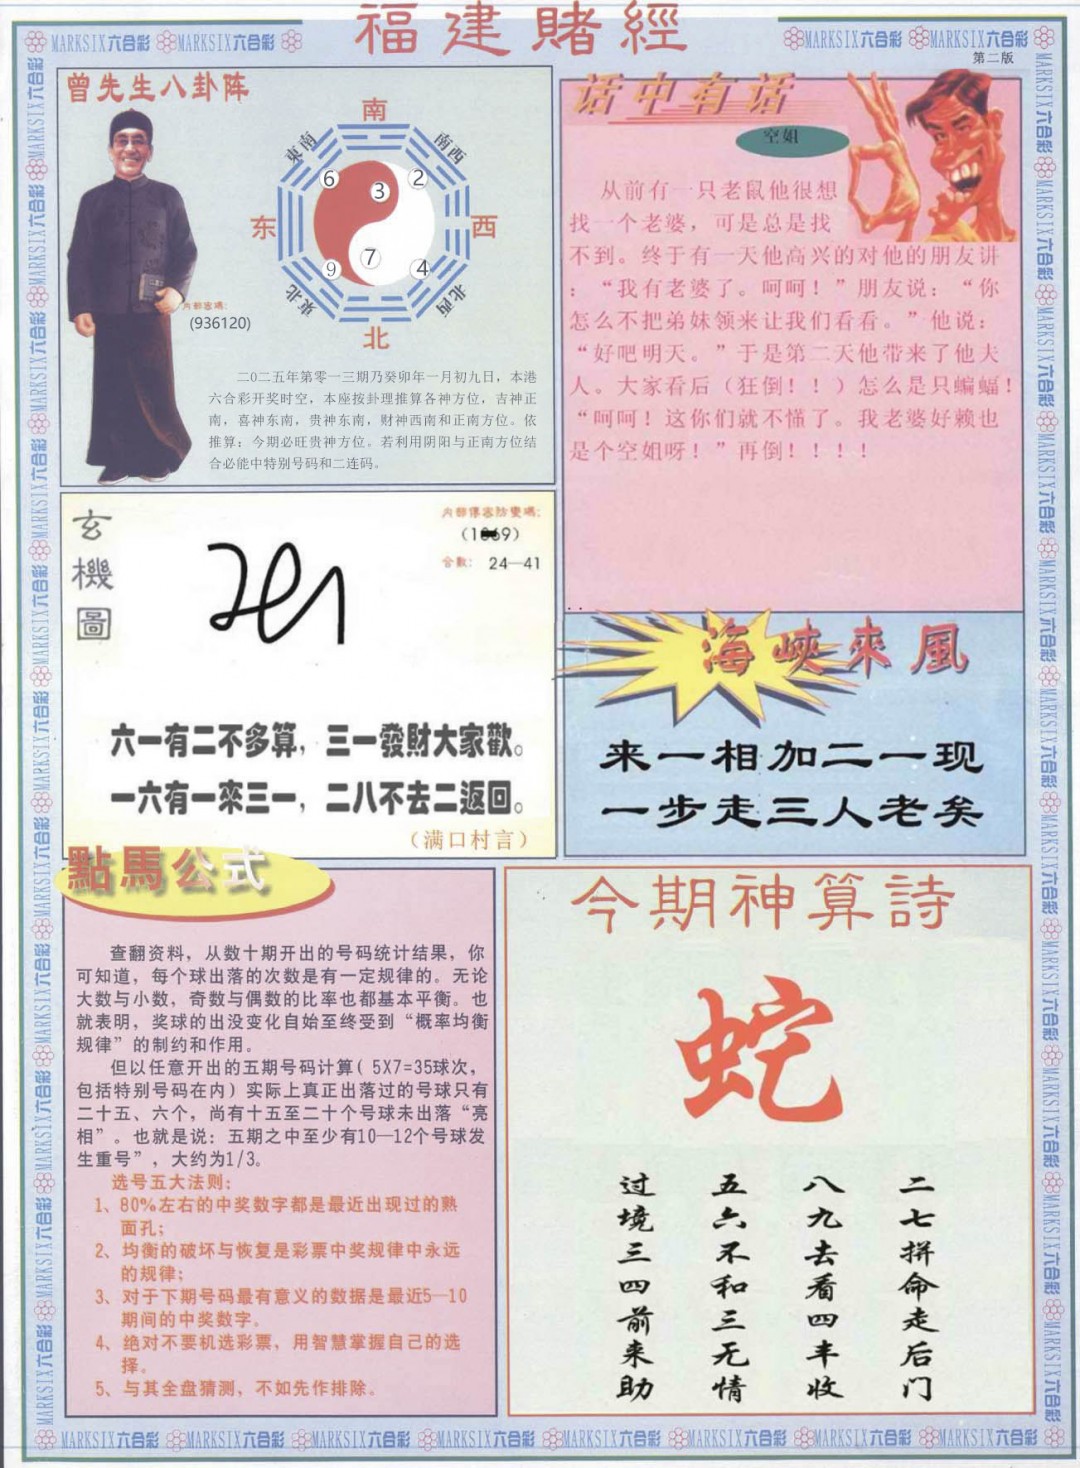 福建賭經
MARKSIX六合彩 MARKSIX六合彩
MARKSIX六合彩 MARKSIX六合彩
第二版
曾先生八卦阵
南
東南
南西
6
3
2
东
西
7
9
4
東北
北西
北
内部密碼:
(936120)
二〇二五年第零一三期乃癸卯年一月初九日，本港
六合彩开奖时空，本座按卦理推算各神方位，吉神正
南，喜神东南，贵神东南，财神西南和正南方位。依
推算：今期必旺贵神方位。若利用阴阳与正南方位结
合必能中特别号码和二连码。
话中有话
空姐
从前有一只老鼠他很想
找一个老婆，可是总是找
不到。终于有一天他高兴的对他的朋友讲
：“我有老婆了。呵呵！”朋友说：“你
怎么不把弟妹领来让我们看看。”他说：
“好吧明天。”于是第二天他带来了他夫
人。大家看后（狂倒！！）怎么是只蝙蝠！
“呵呵！这你们就不懂了。我老婆好赖也
是个空姐呀！”再倒！！！！
玄機圖
内部傳密防變碼:
合數: 24—41
六一有二不多算，三一發財大家歡。
一六有一來三一，二八不去二返回。
（满口村言）
海峽來風
来一相加二一现
一步走三人老矣
點馬公式
查翻资料，从数十期开出的号码统计结果，你
可知道，每个球出落的次数是有一定规律的。无论
大数与小数，奇数与偶数的比率也都基本平衡。也
就表明，奖球的出没变化自始至终受到“概率均衡
规律”的制约和作用。
但以任意开出的五期号码计算( 5X7=35球次，
包括特别号码在内）实际上真正出落过的号球只有
二十五、六个，尚有十五至二十个号球未出落“亮
相”。也就是说：五期之中至少有10—12个号球发
生重号”，大约为1/3。
选号五大法则:
1、80%左右的中奖数字都是最近出现过的熟
面孔；
2、均衡的破坏与恢复是彩票中奖规律中永远
的规律；
3、对于下期号码最有意义的数据是最近5—10
期间的中奖数字。
4、绝对不要机选彩票，用智慧掌握自己的选
择。
5、与其全盘猜测，不如先作排除。
今期神算詩
蛇
二七拼命走后门
八九去看四丰收
五六不和三无情
过境三四前来助
MARKSIX六合彩 MARKSIX六合彩 MARKSIX六合彩 MARKSIX六合彩 MARKSIX六合彩 MARKSIX六合彩 MARKSIX六合彩 MARKSIX六合彩